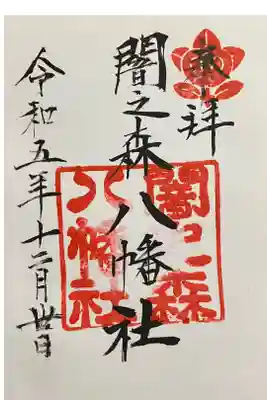 奉拝
闇之森八幡社
令和五年十二月卅日
闇之森
八幡社